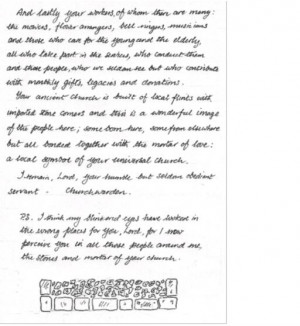 And lastly your workers, of whom there are many:
the movers, flower arrangers, bell ringers, musicians
and those who care for the young and the elderly,
all who take part in the services, who conduct them
and those people, who we seldom see but who contribute
with monthly gifts, legacies and donations.
Your ancient church is built of local flints with
imported stone corners and this is a wonderful image
of the people here; some born here, some from elsewhere
but all bonded together with the mortar of love:
a local symbol of your universal church.
I remain, Lord, your humble but seldom obedient
servant. Churchwarden.
P.S. I think my stone eyes have looked in
the wrong places for you, Lord, for I now
perceive you in all those people around me,
the stones and mortar of your church.